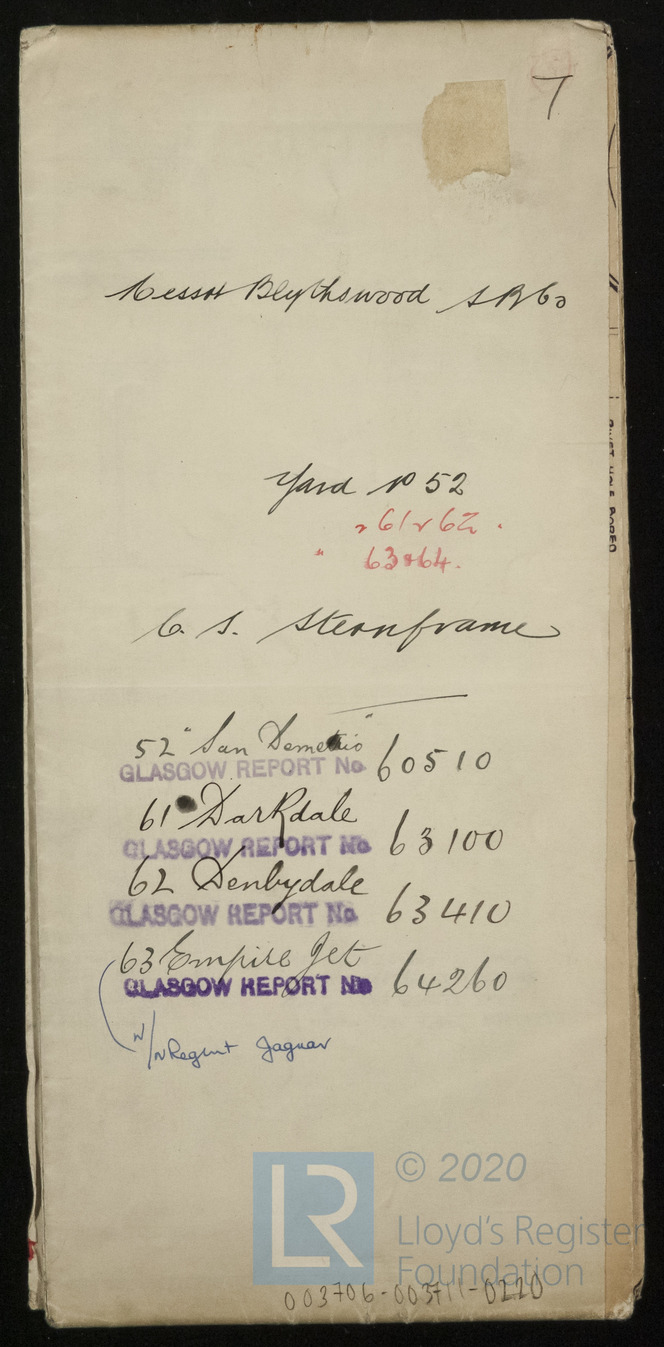 7
Messrs Blythswood S B Co
Yard No 52
" 61 & 62.
" 63 & 64.
C. S. Sternframe
52 "San Demetrio"
GLASGOW REPORT No 60510
61 Darkdale
GLASGOW REPORT No 63100
62 Denbydale
GLASGOW REPORT No 63410
63 Empire Jet
GLASGOW REPORT No 64260
N/N Regent Jaguar
LR
© 2020
Lloyd's Register
Foundation
003706-003711-0220